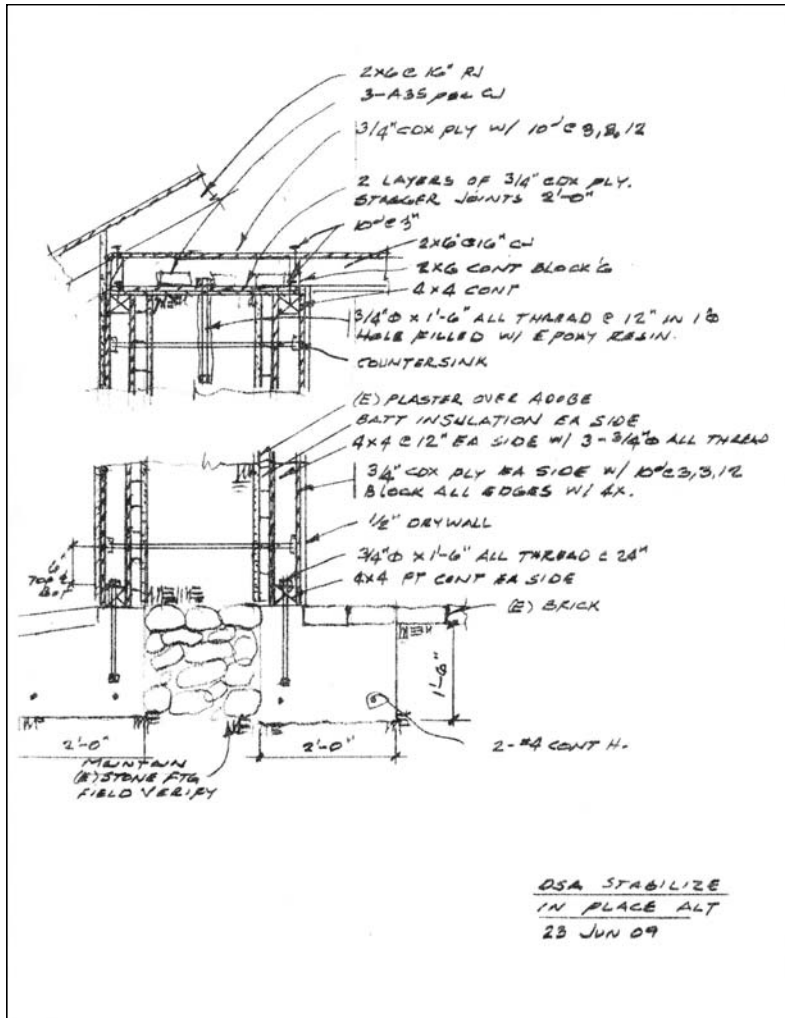 2x6 @ 16" RJ
3-A35 per CJ
3/4" CDX PLY W/ 10d @ 3, 8, 12
2 LAYERS OF 3/4" CDX PLY.
STAGGER JOINTS 2'-0"
10d @ 3"
2x6 @ 16" CJ
2x6 CONT BLOCK'G
4x4 CONT
3/4" Φ x 1'-6" ALL THREAD @ 12" IN 1" Φ
HOLE FILLED W/ EPOXY RESIN.
COUNTERSINK
(E) PLASTER OVER ADOBE
BATT INSULATION EA SIDE
4x4 @ 12" EA SIDE W/ 3-3/4" Φ ALL THREAD
3/4" CDX PLY EA SIDE W/ 10d @ 3, 3, 12
BLOCK ALL EDGES W/ 4x.
1/2" DRYWALL
3/4" Φ x 1'-6" ALL THREAD @ 24"
6"
TOP &
BOT
4x4 PT CONT EA SIDE
(E) BRICK
1'-6"
2'-0"
2'-0"
2-#4 CONT H.
MAINTAIN
(E) STONE FTG
FIELD VERIFY
DSA STABILIZE
IN PLACE ALT
23 JUN 09